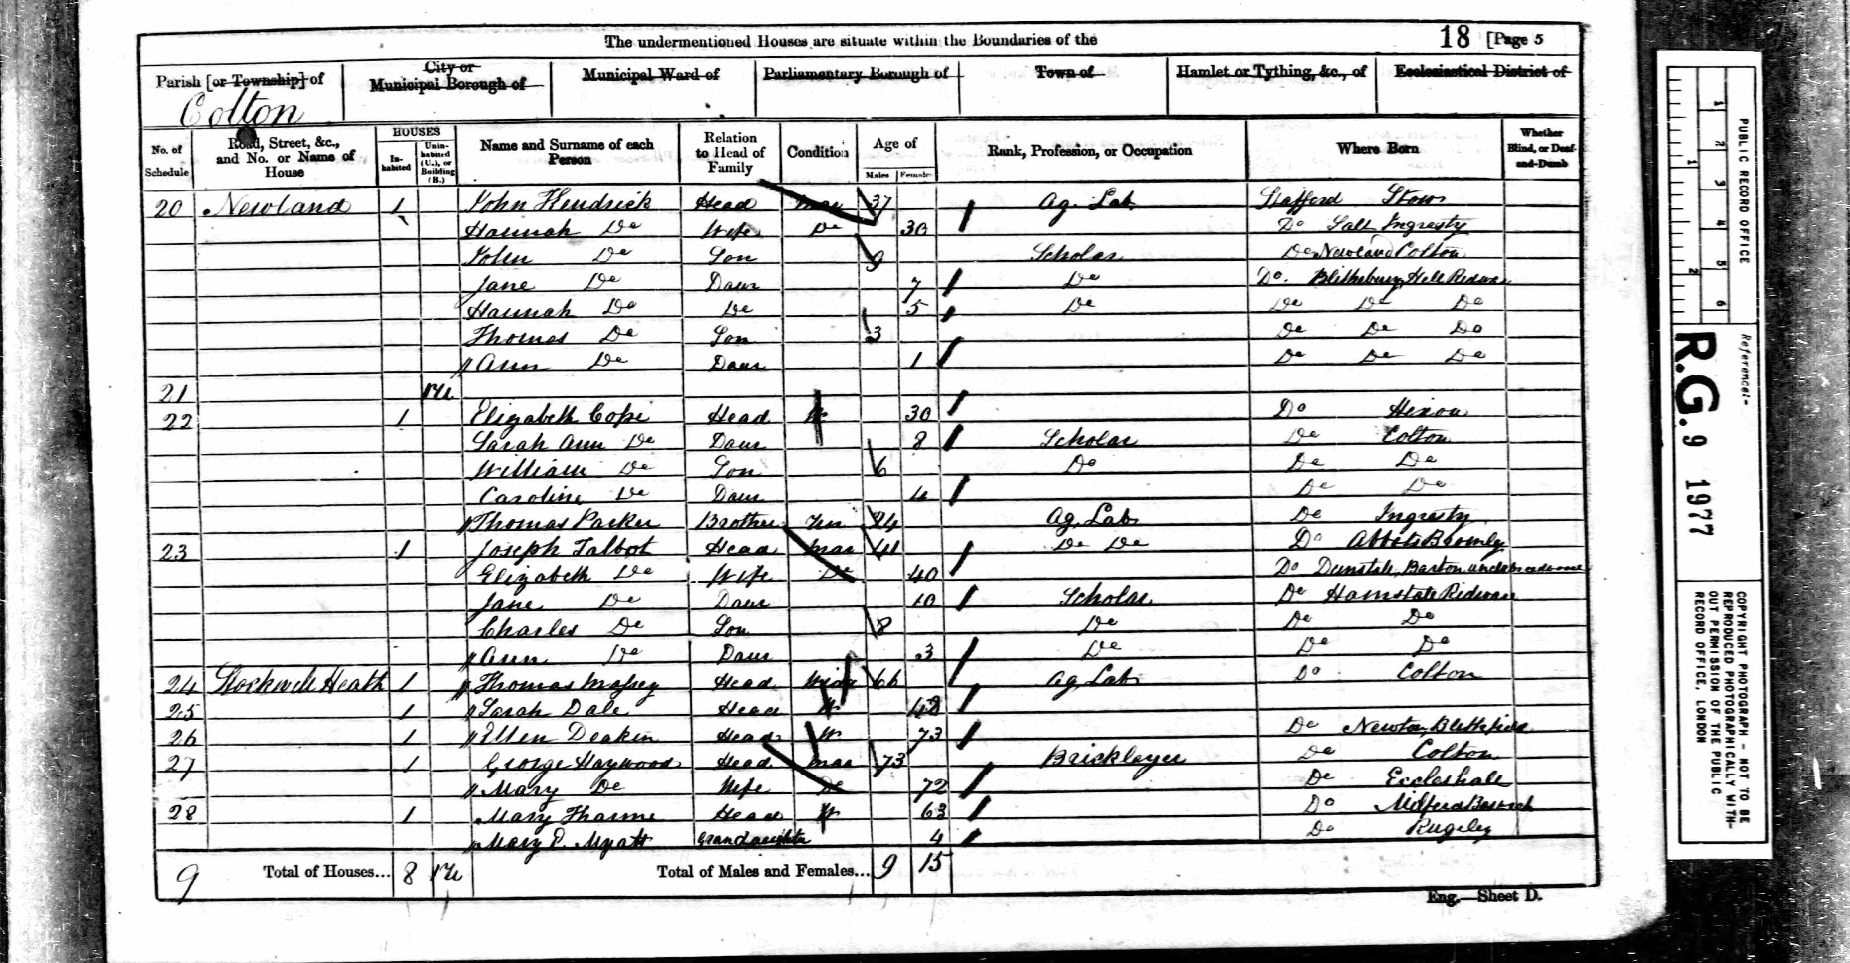 The undermentioned Houses are situate within the Boundaries of the 18 [Page 5
Parish [or Township] of City or Municipal Borough of Municipal Ward of Parliamentary Borough of Town of Hamlet or Tything, &c., of Ecclesiastical District of
Colton
No. of Schedule Road, Street, &c., and No. or Name of House HOUSES Inhabited Uninhabited (U.), or Building (B.) Name and Surname of each Person Relation to Head of Family Condition Age of Males Females Rank, Profession, or Occupation Where Born Whether Blind, or Deaf-and-Dumb
20 Newland 1 John Hendrick Head Mar 37 Ag. Lab. Stafford Stow
Hannah Do Wife Do 30 Do Salt Ingestry
John Do Son 9 Scholar Do Newland Colton
Jane Do Daur 7 Do Do. Blithebury Hall Ridware
Hannah Do Do 5 Do Do Do Do
Thomas Do Son 3 Do Do Do
Ann Do Daur 1 Do Do Do
21 1U
22 1 Elizabeth Cope Head W 30 Do Hixon
Sarah Ann Do Daur 8 Scholar Do Colton
William Do Son 6 Do Do Do
Caroline Do Daur 4 Do Do
Thomas Parker Brother Un 24 Ag. Lab. Do Ingesty
23 1 Joseph Talbot Head Mar 41 Do Do Do Abbots Bromley
Elizabeth Do Wife Do 40 Do Dunstall, Barton under
Jane Do Daur 10 Scholar Do Hamstall Ridware
Charles Do Son 8 Do Do Do
Ann Do Daur 3 Do Do Do
24 Stockwell Heath 1 Thomas Massey Head Widr 66 Ag. Lab. Do Colton
25 1 Sarah Dale Head W 48
26 1 Ellen Deakin Head W 73 Do Newton, Blithfield
27 1 George Haywood Head Mar 73 Bricklayer Do Colton
Mary Do Wife Do 72 Do Eccleshall
28 1 Mary Tharme Head W 63 Do Milford Baswich
Mary E. Myatt Grandaughter 4 Do Rugeley
9 Total of Houses... 8 1U Total of Males and Females... 9 15
Eng.—Sheet D.
PUBLIC RECORD OFFICE
1 2 3 4 5 6
1 2
Reference:-
R.G. 9 1977
COPYRIGHT PHOTOGRAPH - NOT TO BE
REPRODUCED PHOTOGRAPHICALLY WITH-
OUT PERMISSION OF THE PUBLIC
RECORD OFFICE, LONDON